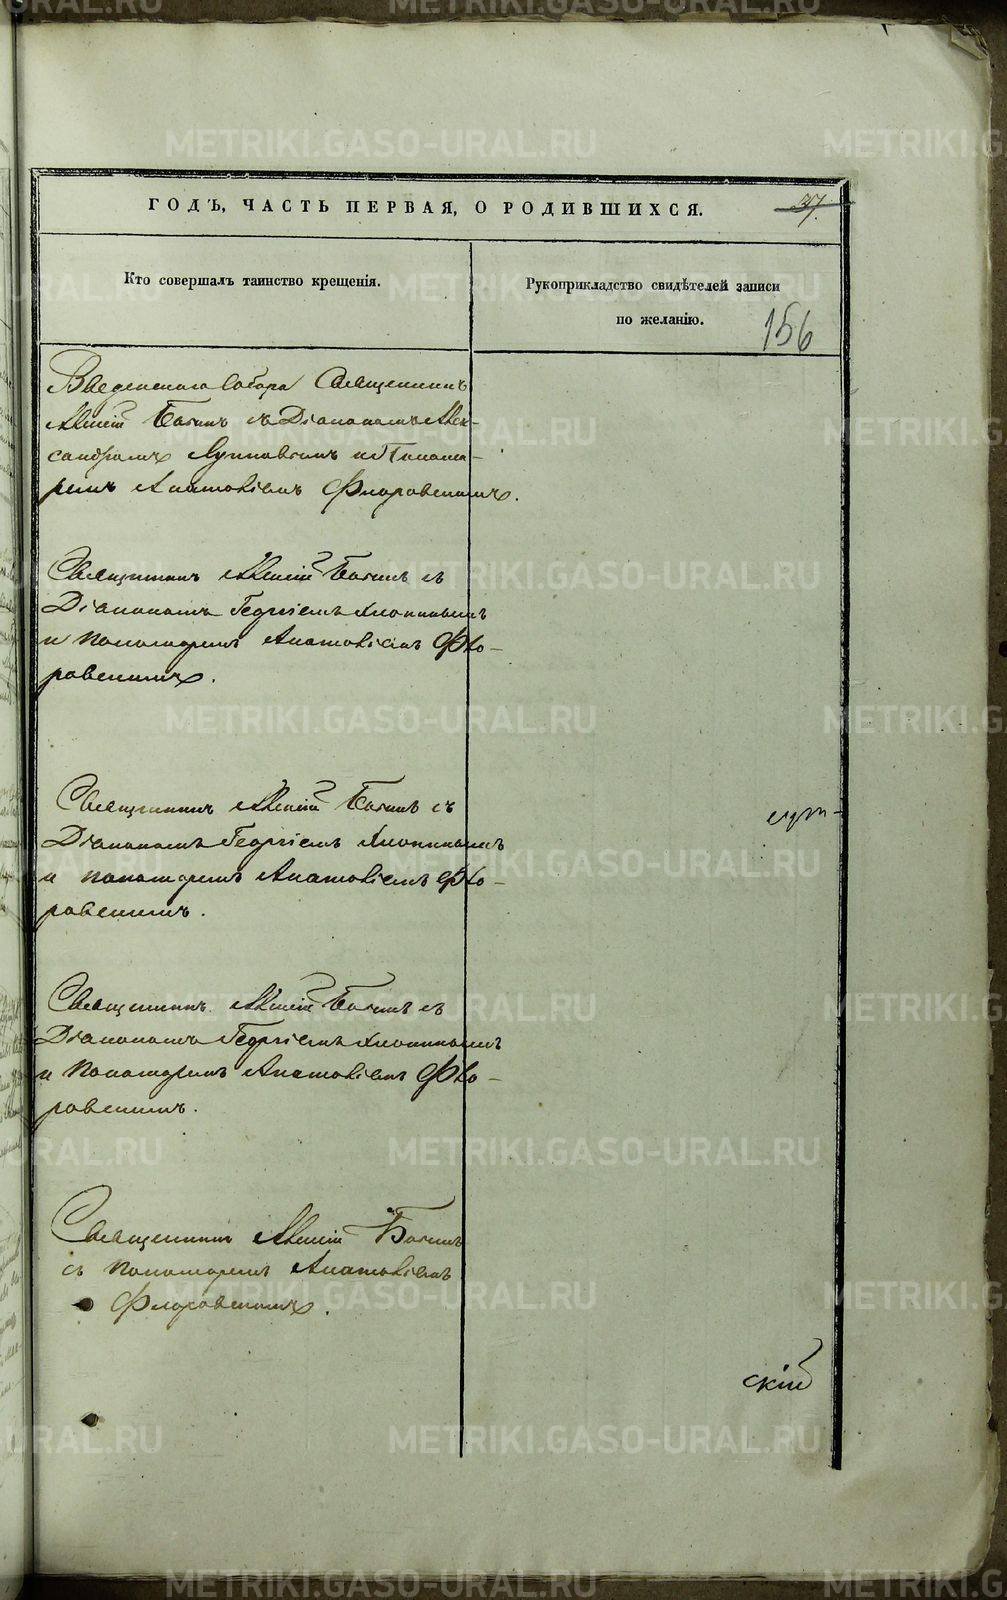 ГОДЪ, ЧАСТЬ ПЕРВАЯ, О РОДИВШИХСЯ.
37.
Кто совершалъ таинство крещенія.
Рукоприкладство свидѣтелей записи
по желанію.
156
Введенскаго Собора Священникъ
Алексій съ Діакономъ Алек-
сандромъ и Понома-
ремъ Анатоліемъ Флоровскимъ.
Священникъ Алексій съ
Діакономъ Георгіемъ Хлопинымъ
и пономаремъ Анатоліемъ Фло-
ровскимъ.
Священникъ Алексій съ
Діакономъ Георгіемъ Хлопинымъ
и пономаремъ Анатоліемъ Фло-
ровскимъ.
Священникъ Алексій съ
Діакономъ Георгіемъ Хлопинымъ
и пономаремъ Анатоліемъ Фло-
ровскимъ.
Священникъ Алексій
съ пономаремъ Анатоліемъ
Флоровскимъ.
скій
METRIKI.GASO-URAL.RU